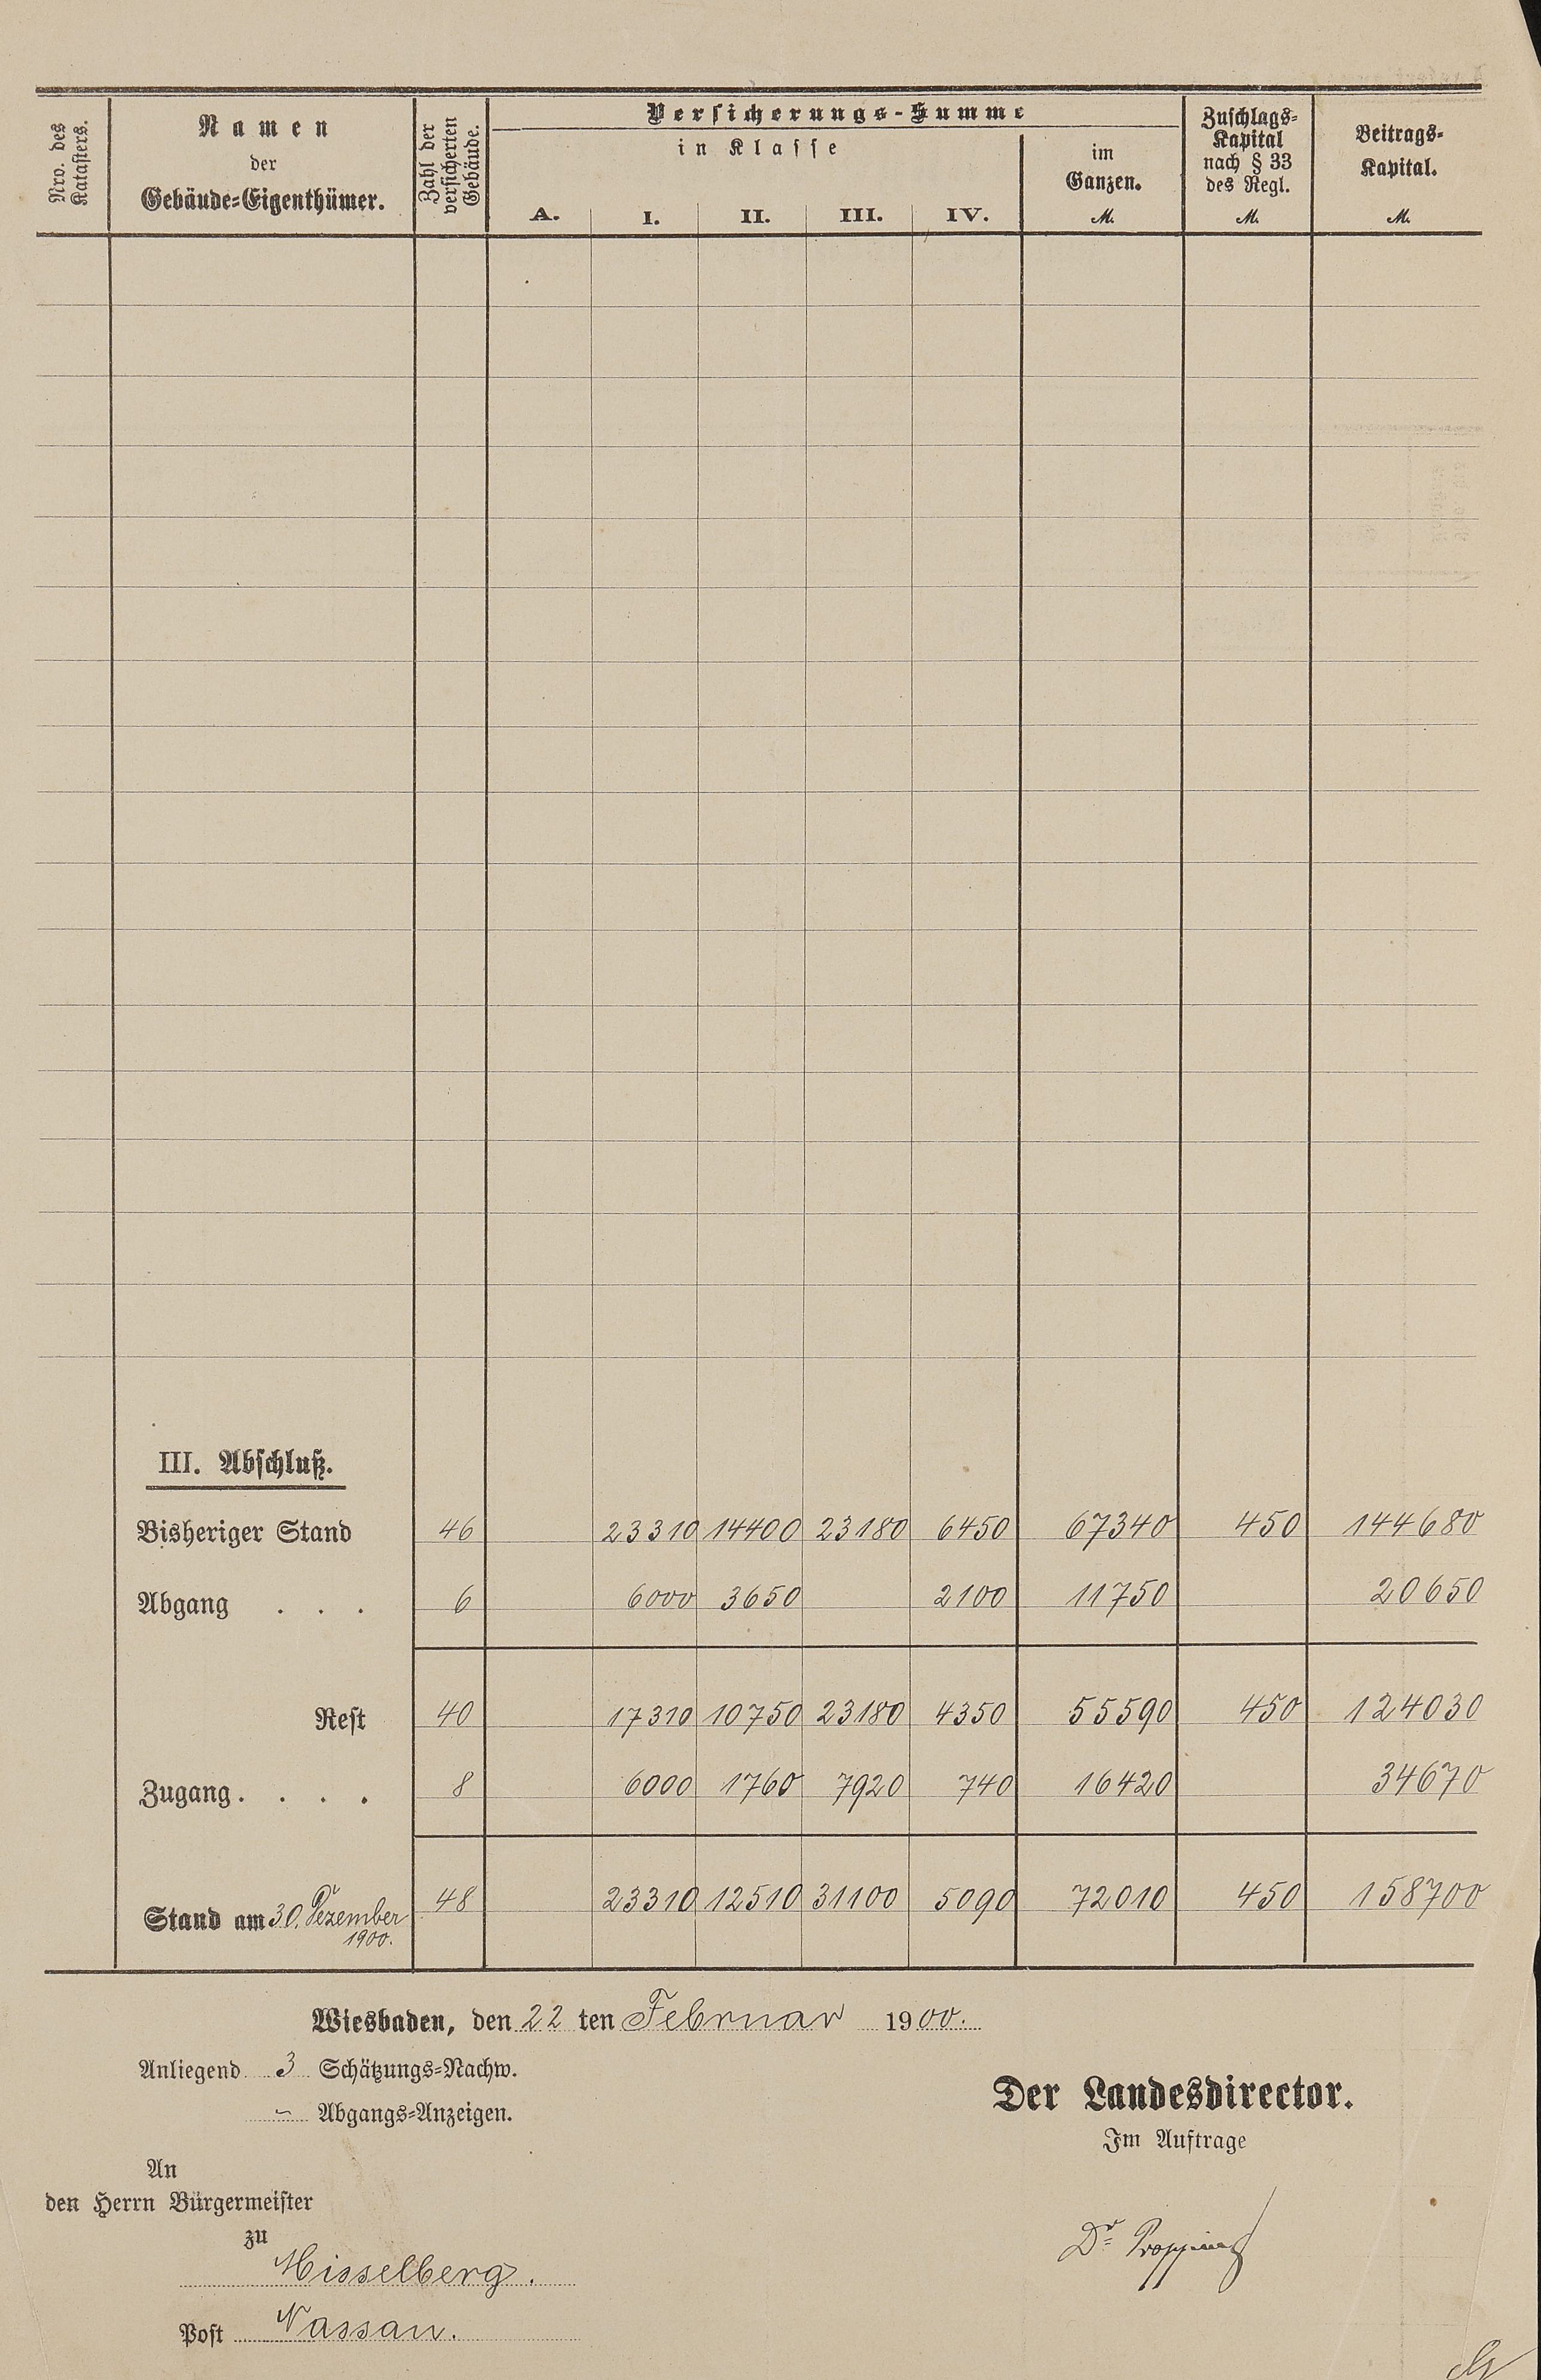 Nro. des
Katasters.
Namen
der
Gebäude=Eigenthümer.
Zahl der
versicherten
Gebäude.
Versicherungs-Summe
in Klasse
A. I. II. III. IV.
im
Ganzen.
M.
Zuschlags=
Kapital
nach § 33
des Regl.
M.
Beitrags=
Kapital.
M.
III. Abschluß.
Bisheriger Stand 46 23310 14400 23180 6450 67340 450 144680
Abgang . . . 6 6000 3650 2100 11750 20650
Rest 40 17310 10750 23180 4350 55590 450 124030
Zugang . . . . 8 6000 1760 7920 740 16420 34670
Stand am 30. Dezember 48 23310 12510 31100 5090 72010 450 158700
1900.
Wiesbaden, den 22 ten Februar 1900.
Anliegend 3 Schätzungs=Nachw.
– Abgangs=Anzeigen.
Der Landesdirector.
Im Auftrage
An
den Herrn Bürgermeister
zu
Misselberg.
Post Nassau.
Dr